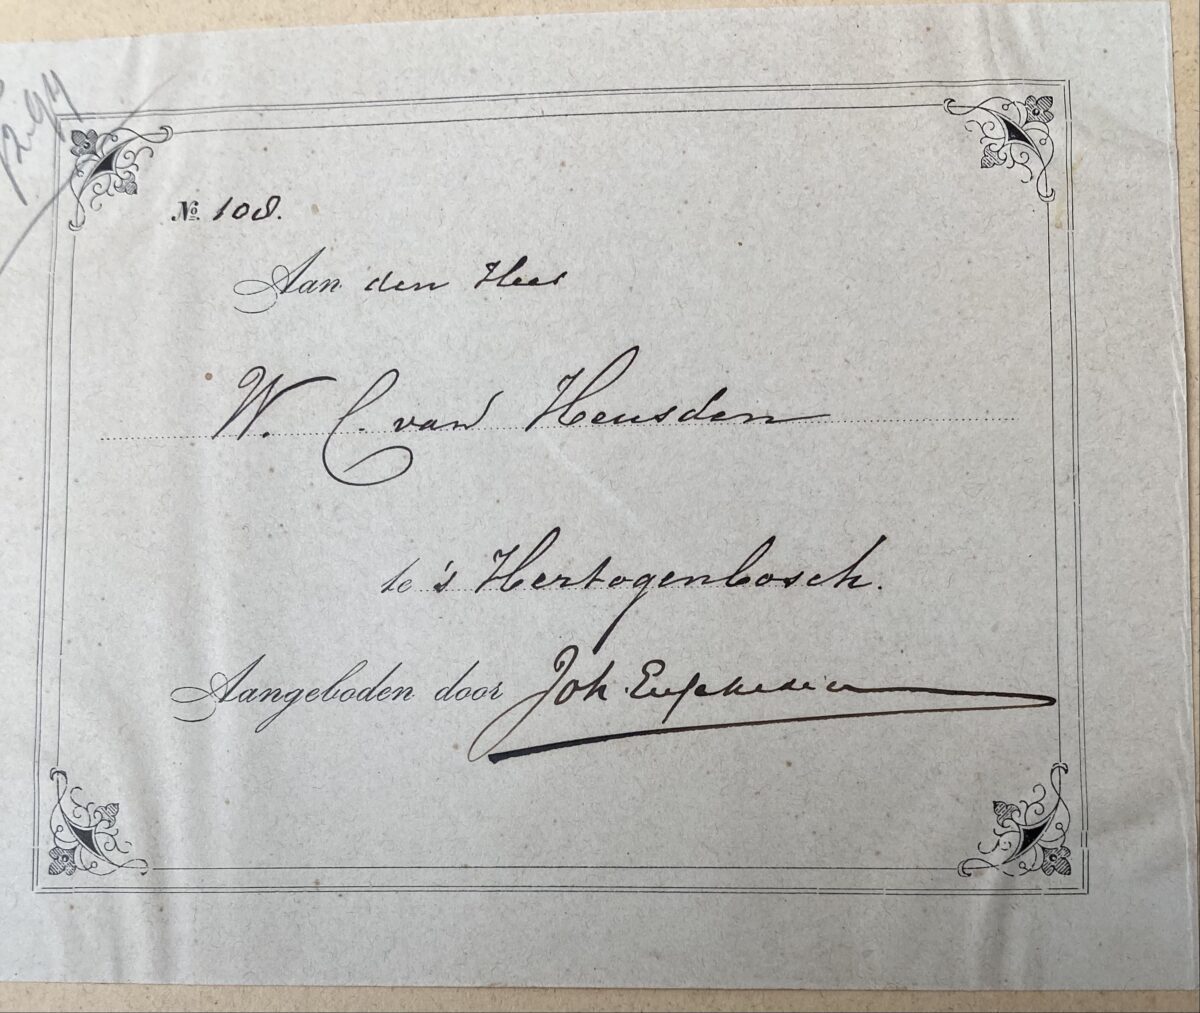 № 108.
Aan den Heer
W. C. van Heusden
te 's Hertogenbosch.
Aangeboden door Joh.